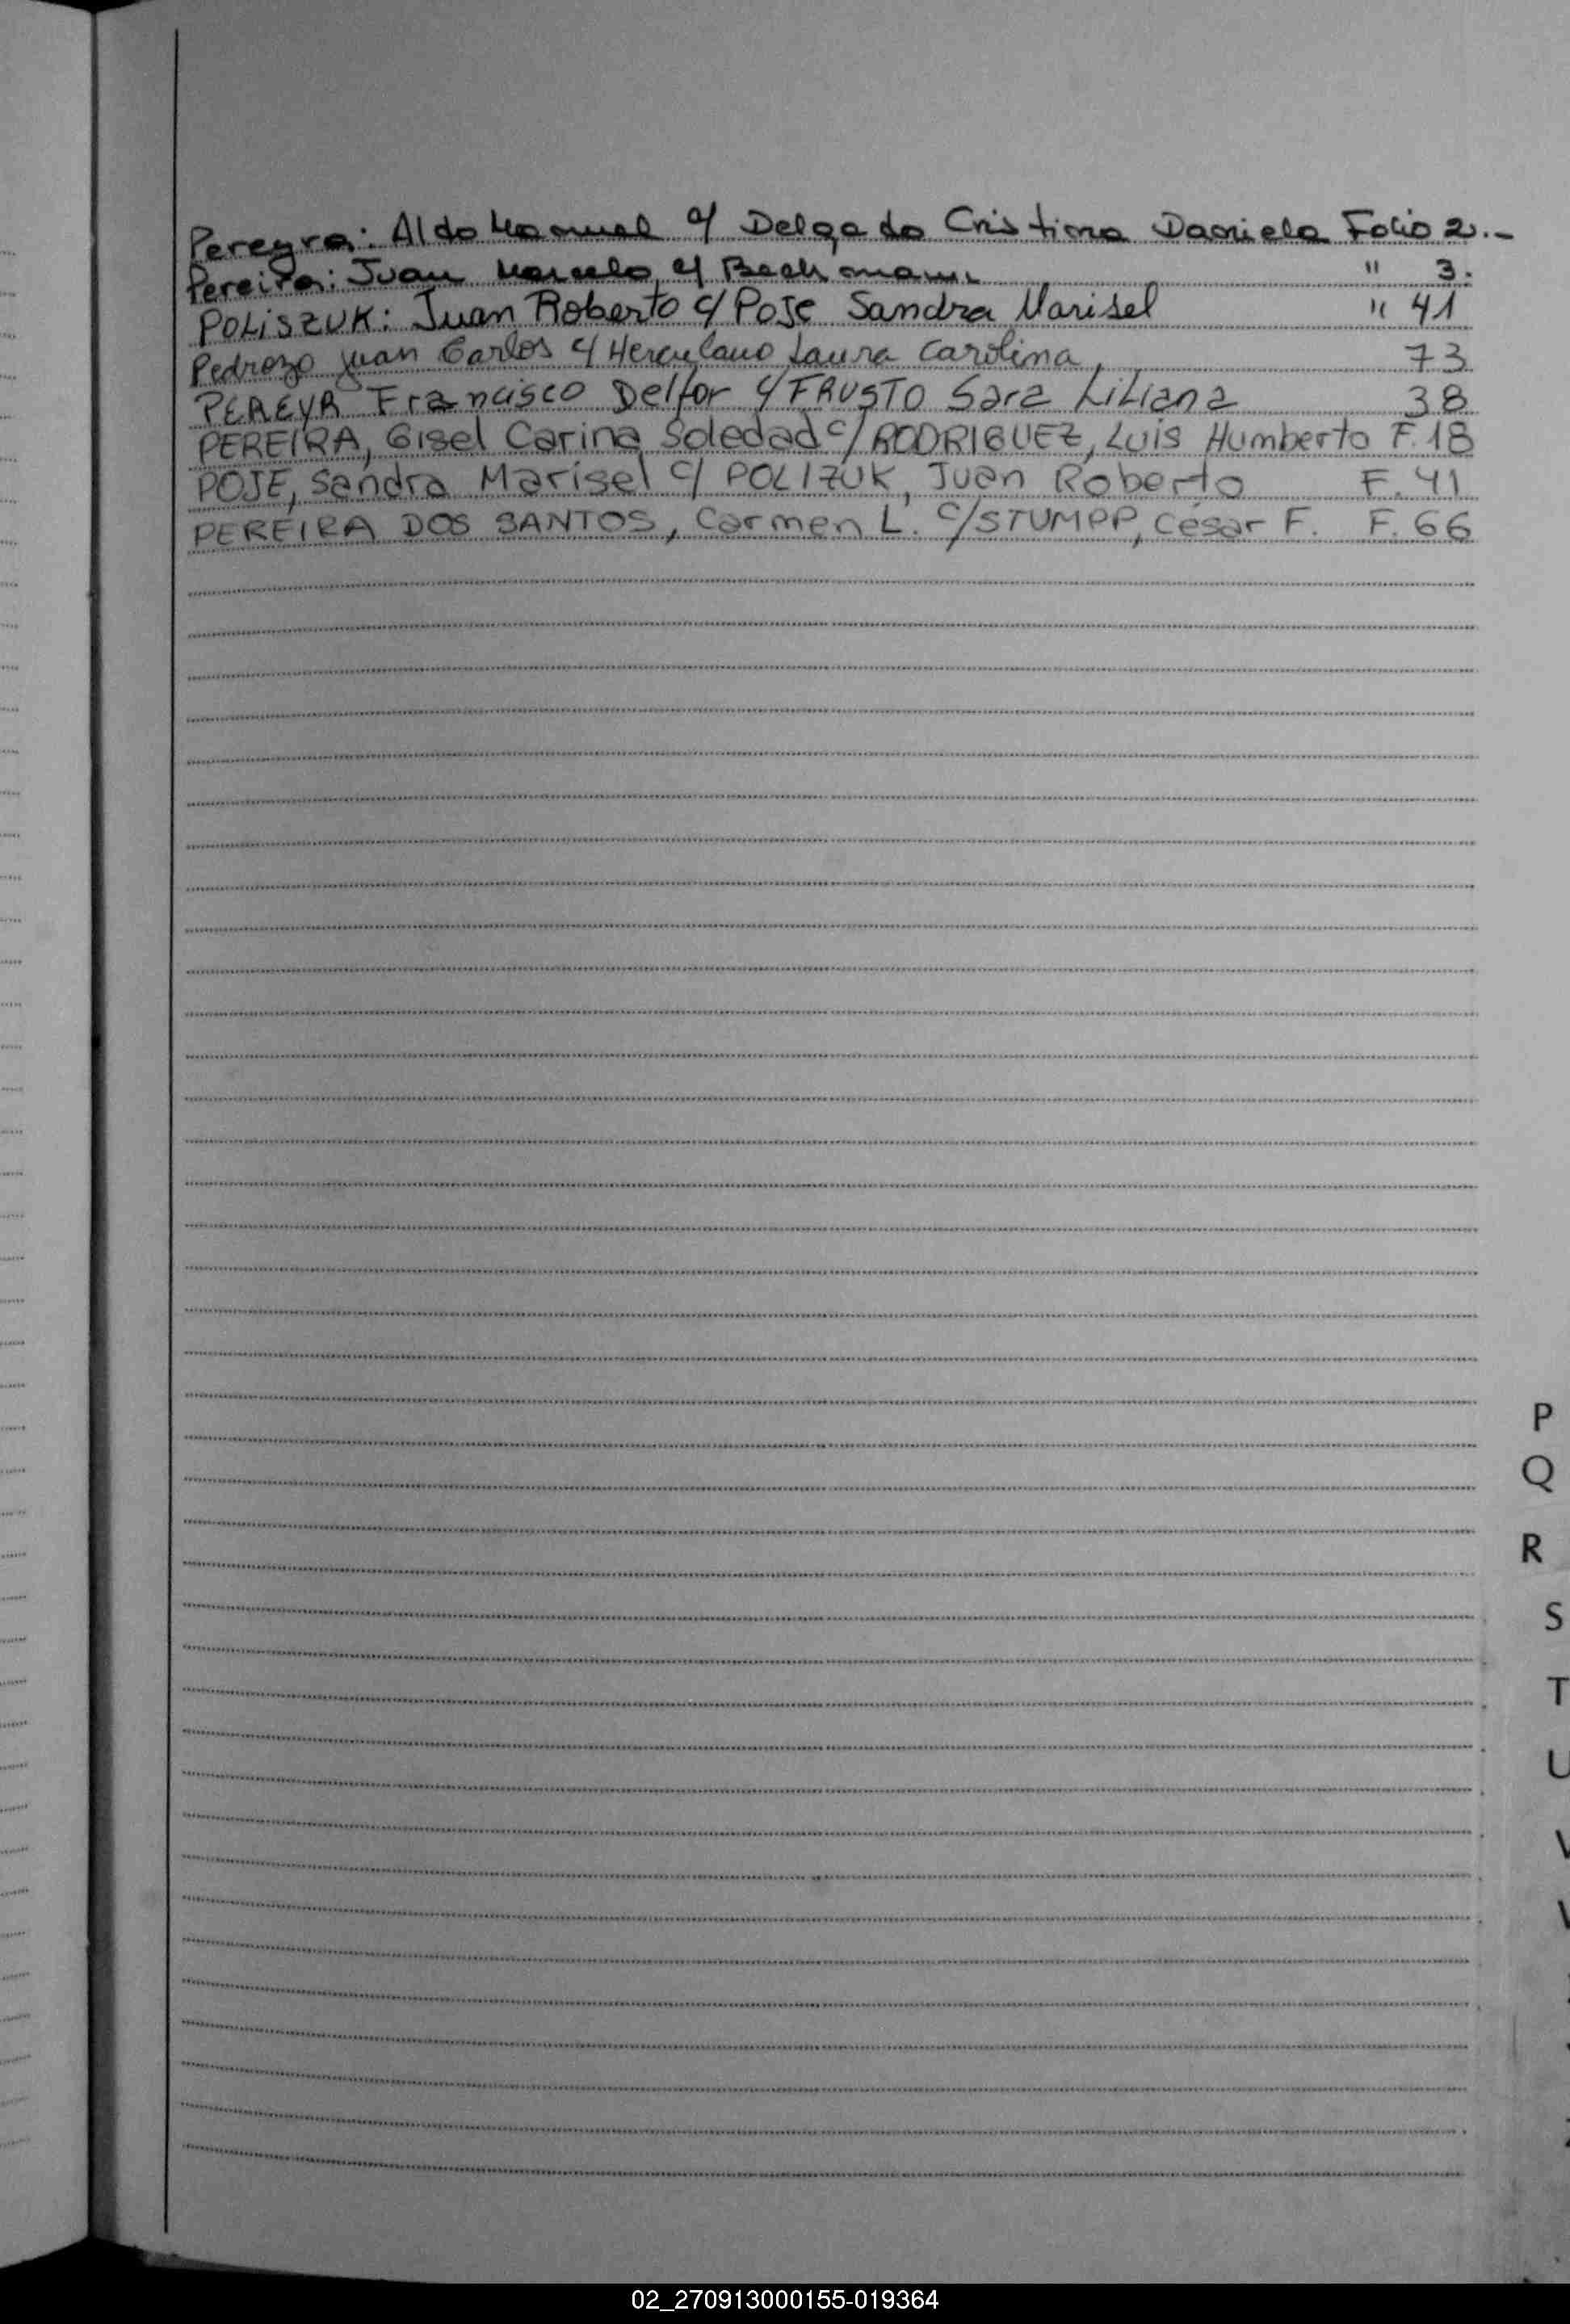 Pereyra: Aldo Manuel c/ Delgado Cristina Daniela Folio 2.-
Pereira: Juan Marcelo c/ Bechmann " 3.
POLISZUK: Juan Roberto c/ Poje Sandra Marisel " 41
Pedrozo Juan Carlos c/ Herculano Laura Carolina 73
PEREYR Francisco Delfor c/ FAUSTO Sara Liliana 38
PEREIRA, Gisel Carina Soledad c/ RODRIGUEZ, Luis Humberto F. 18
POJE, Sandra Marisel c/ POLIZUK, Juan Roberto F. 41
PEREIRA DOS SANTOS, Carmen L. c/ STUMPP, César F. F. 66
P
Q
R
S
T
U
V
02_270913000155-019364